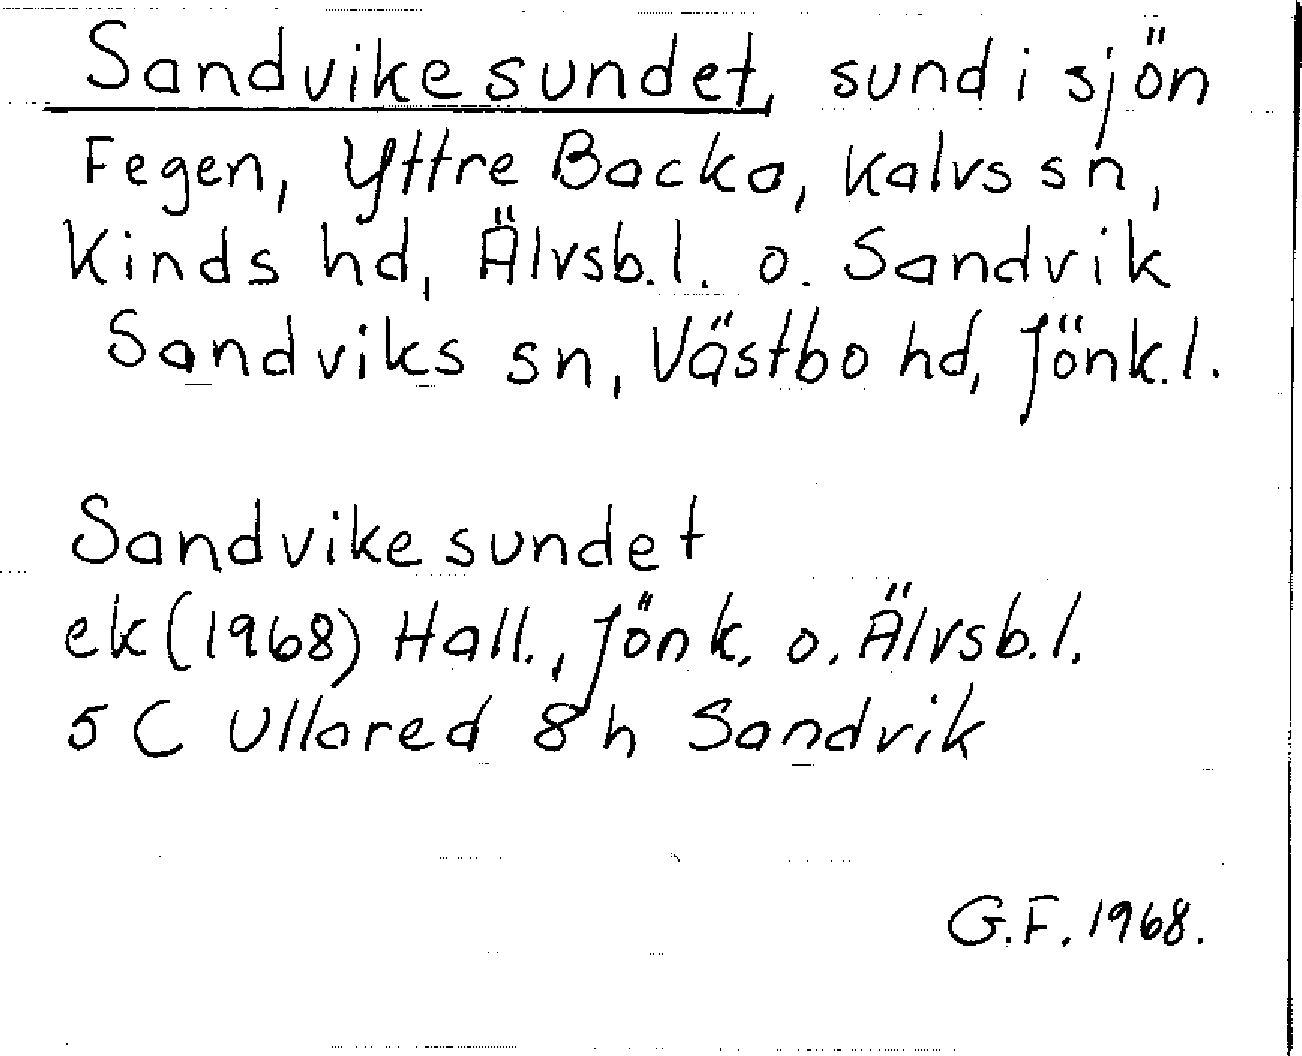 Sandvikesundet, sund i sjön
Fegen, Yttre Backa, Kalvs sn,
Kinds hd, Älvsb.l. o. Sandvik
Sandviks sn, Västbo hd, Jönk.l.
Sandvikesundet
ek (1968) Hall., Jönk. o. Älvsb.l.
5 C Ullared 8 h Sandvik
G.F. 1968.